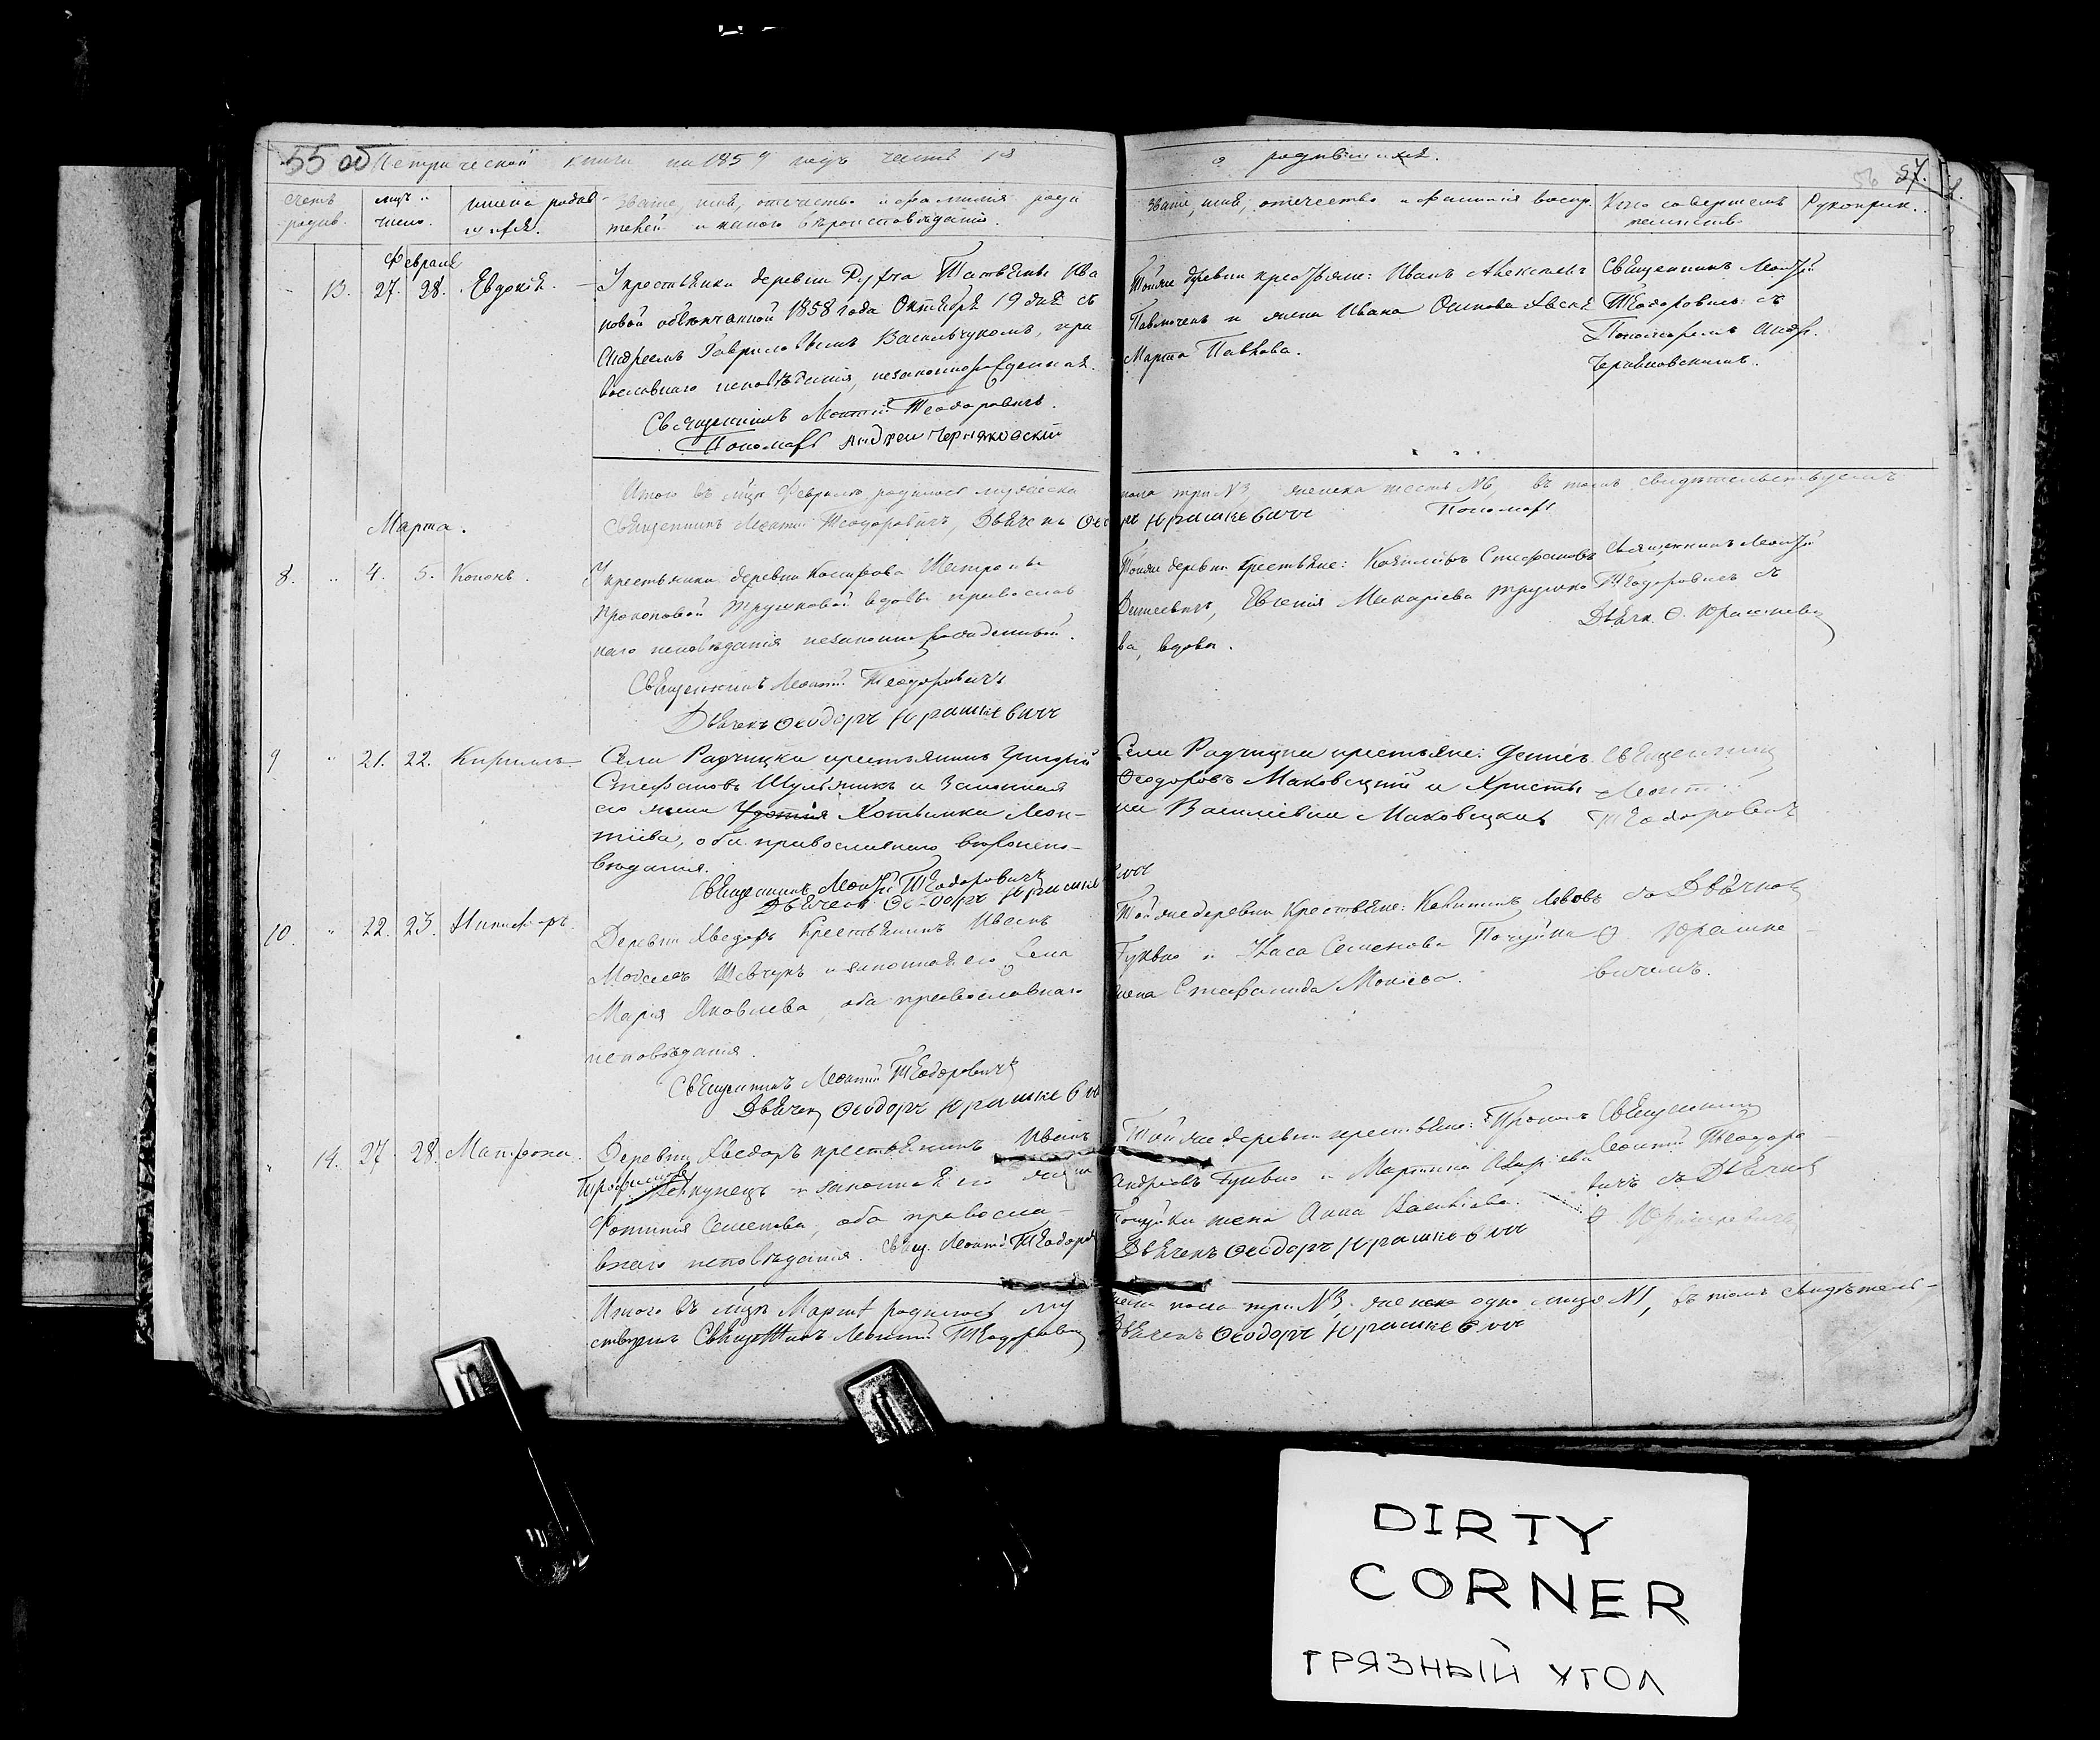 55 об Метрической книги на 1859 годъ часть 1я
о родившихся.
57.
56
Счетъ родив.
мцъ и число.
имена родившихся.
Званіе, имя, отчество и фамилія роди
телей и какого вѣроисповѣданія.
Званіе, имя, отчество и фамилія воспр.
Кто совершалъ таинств.
Рукоприк.
Февраля
13. 27. 28. Евдокія.
У крестьянки деревни Рубла Татьяны Ива
новой обвѣнчанной 1858 года Октября 19 дня съ
Андреемъ Гавриловымъ Васильчукомъ, пра
вославнаго исповѣданія, незаконнорожденная.
Священникъ Леонтій Теодоровичъ.
Пономарь Андрей Черняковскій
Тойже деревни крестьяне: Иванъ Алексеевъ
Павлючекъ и жена Ивана
Марта Павлова.
Священникъ Леонтій
Теодоровичъ съ
Пономаремъ Андр.
Черняковскимъ.
Итого въ мцѣ Февралѣ родилось мужеска
пола три №3, женска шесть №6, въ томъ свидѣтельствуемъ
Священникъ Леонтій Теодоровичъ, Дьячекъ Ѳеодоръ Юрашкевичъ Пономарь
Марта.
8. " 4. 5. Кононъ.
У крестьянки деревни
Прокоповой Трушковой вдовы православ
наго исповѣданія незаконнорожденный.
Священникъ Леонтій Теодоровичъ
Дьячекъ Ѳеодоръ Юрашкевичъ
Тойже деревни крестьяне: Стефановъ
Евгенія Макаріева Трушко
ва, вдова.
Священникъ Леонтій
Теодоровичъ съ
Дьячк. Ѳ. Юрашкев
9 " 21. 22. Кириллъ.
Села Радчицка крестьянинъ Григорій
Стефановъ Шульжикъ и законная
его жена Хотьимка Леон-
тіева, оба православнаго вѣроиспо-
вѣданія.
Священникъ Леонтій Теодоровичъ
Дьячекъ Ѳеодоръ Юрашкевичъ
Села Радчицка крестьяне: Денисъ
Ѳеодоровъ Маковецкій и Христи
на Василіевна Маковецкая
Священникъ
Леонтій
Теодоровичъ
10. " 22. 23. Никифоръ.
Деревни Хведоръ крестьянинъ Иванъ
Шевчукъ и законная его жена
Марія Яковлева, оба православнаго
исповѣданія.
Священникъ Леонтій Теодоровичъ
Дьячекъ Ѳеодоръ Юрашкевичъ
Тойже деревни крестьяне:
Семенова
жена Стефанида
съ Дьячкомъ
Ѳ. Юрашке
вичемъ.
" 14. 27 28. Матрона.
Деревни Хведоръ крестьянинъ Иванъ
и законная его жена
Фотинія Семенова, оба правосла-
внаго исповѣданія. Свящ. Леонтій Теодоров
Тойже деревни крестьяне:
Андреевъ и
жена Анна
Дьячекъ Ѳеодоръ Юрашкевичъ
Священникъ
Леонтій Теодоро
вичъ съ Дьячком
Ѳ. Юрашкевичемъ
Итого въ мцѣ Мартѣ родилось му
жеска пола три №3, женска одно лице №1, въ томъ свидѣтель-
ствуемъ Священникъ Леонтій Теодоровичъ
Дьячекъ Ѳеодоръ Юрашкевичъ
DIRTY
CORNER
ГРЯЗНЫЙ УГОЛ